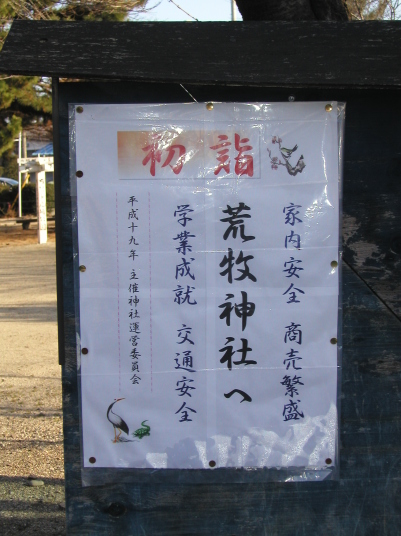 初詣
家内安全 商売繁盛
荒牧神社へ
学業成就 交通安全
平成十九年 主催神社運営委員会